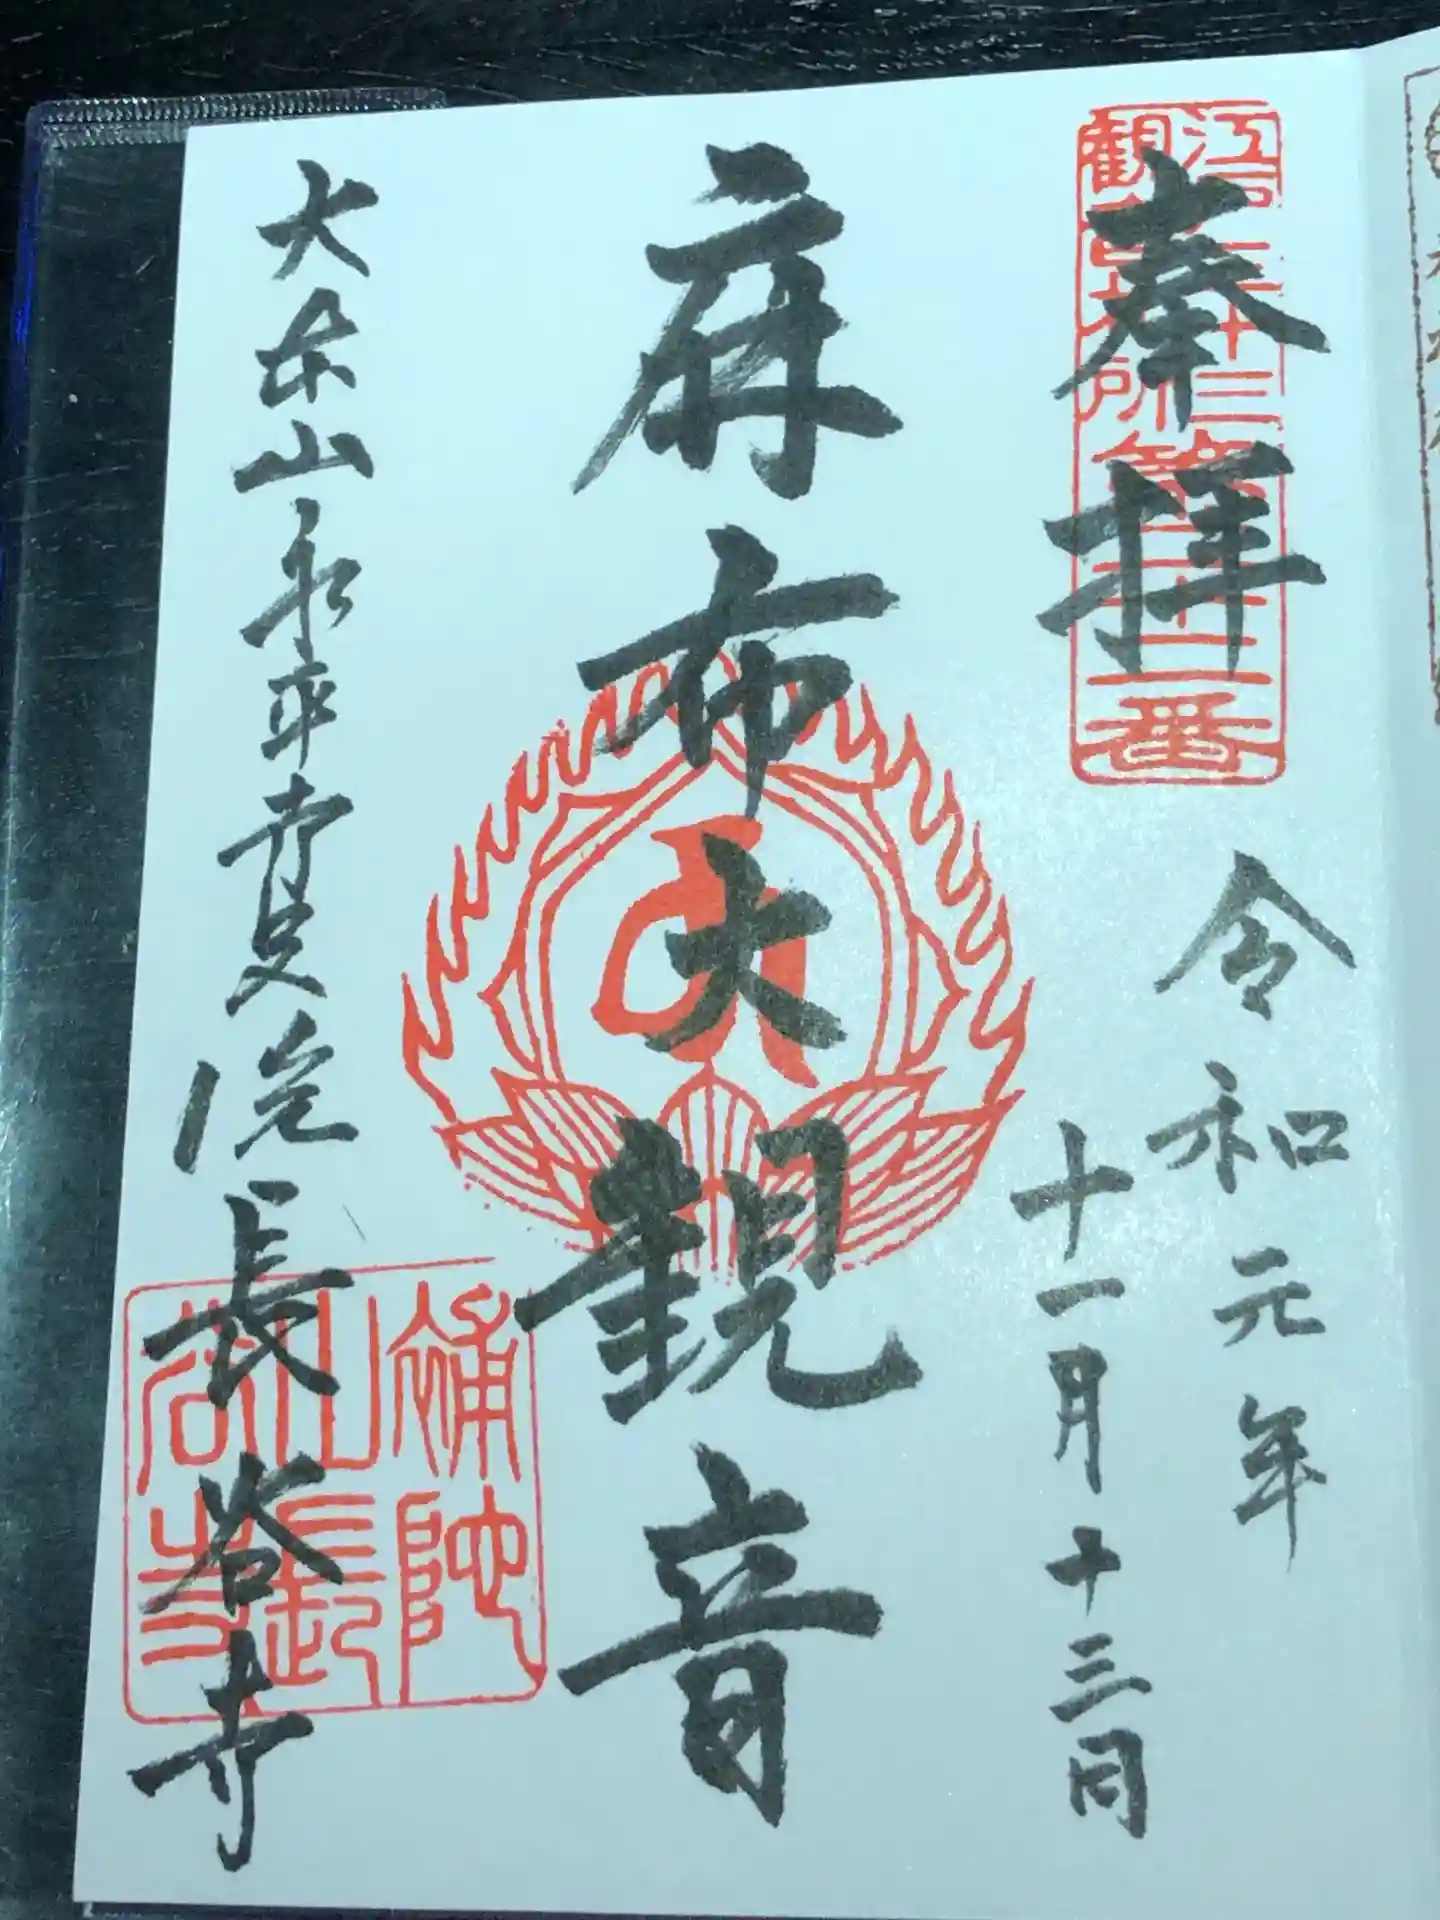 奉拝
江戸三十三
観音札所
第二十二番
令和元年
十一月十三日
麻布大観音
大本山永平寺別院
長谷寺
補陀
山長
谷寺